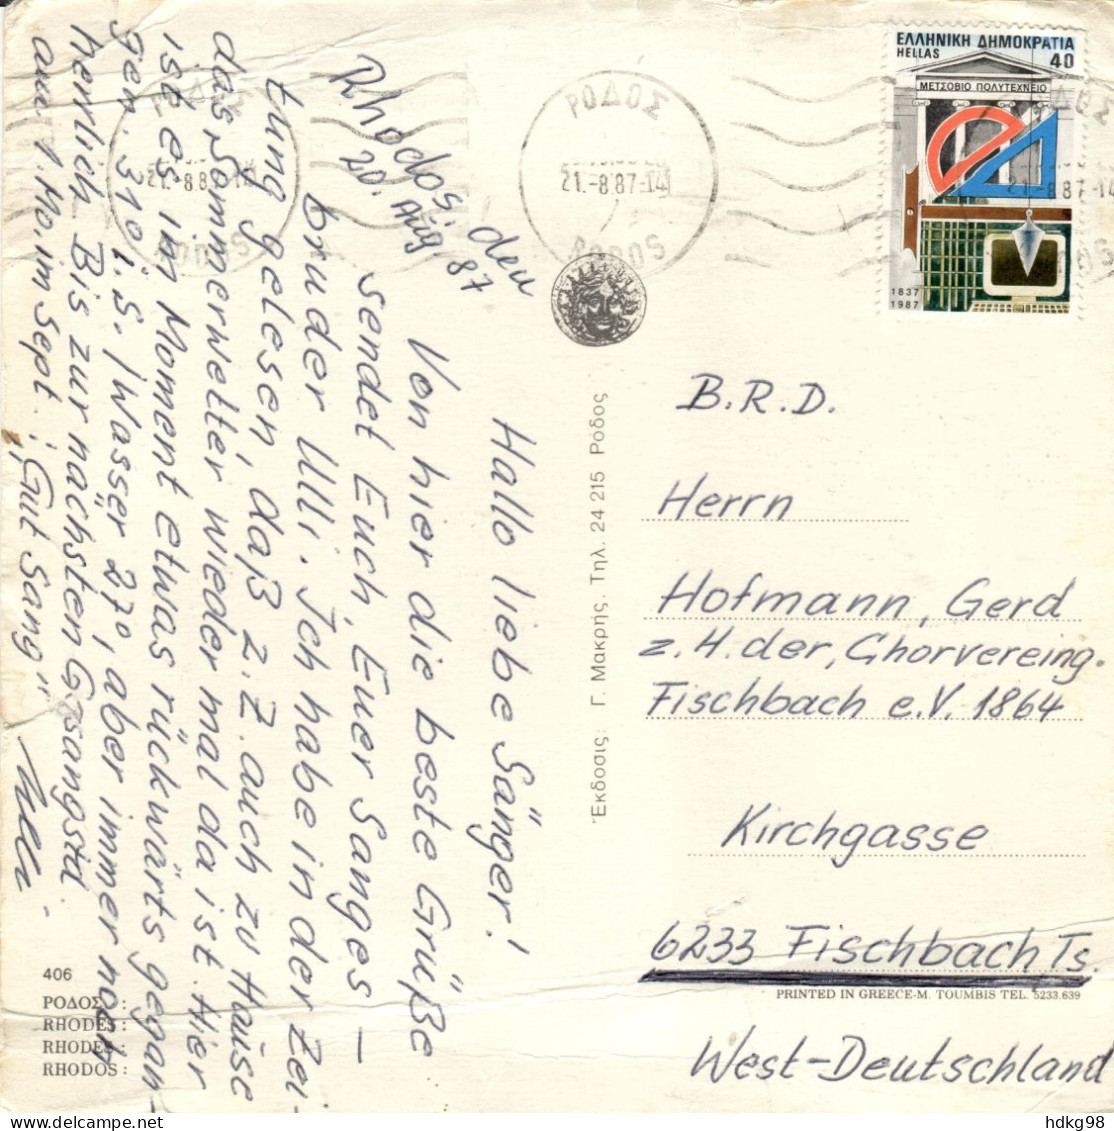 Rhodos, den
20. Aug 87
Hallo liebe Sänger!
Von hier die beste Grüße
sendet Euch, Euer Sanges –
bruder Ulli. Ich habe in der Zei-
tung gelesen, daß z.Z. auch zu Hause
das Sommerwetter wieder mal da ist. Hier
ist es im Moment etwas rückwärts gegan-
gen. 31° i.S. / Wasser 27°, aber immer noch
herrlich. Bis zur nächsten Gesangstd
am 1. Mo. im Sept. i "Gut Sang"
Ulli.
406
ΡΟΔΟΣ :
RHODES :
RHODES :
RHODOS :
Ἔκδοσις: Γ. Μακρῆς. Τηλ. 24 215 Ρόδος
ΡΟΔΟΣ
21.-8.87-14
RODOS
ΡΟΔΟΣ
21.-8.87-14
RODOS
ΕΛΛΗΝΙΚΗ ΔΗΜΟΚΡΑΤΙΑ
HELLAS 40
ΜΕΤΣΟΒΙΟ ΠΟΛΥΤΕΧΝΕΙΟ
1837
1987
ΡΟΔΟΣ
21.-8.87-14
RODOS
B.R.D.
Herrn
Hofmann, Gerd
z.H.der, Chorvereing.
Fischbach e.V. 1864
Kirchgasse
6233 Fischbach Ts.
PRINTED IN GREECE-M. TOUMBIS TEL. 5233.639
West-Deutschland
hdkg98